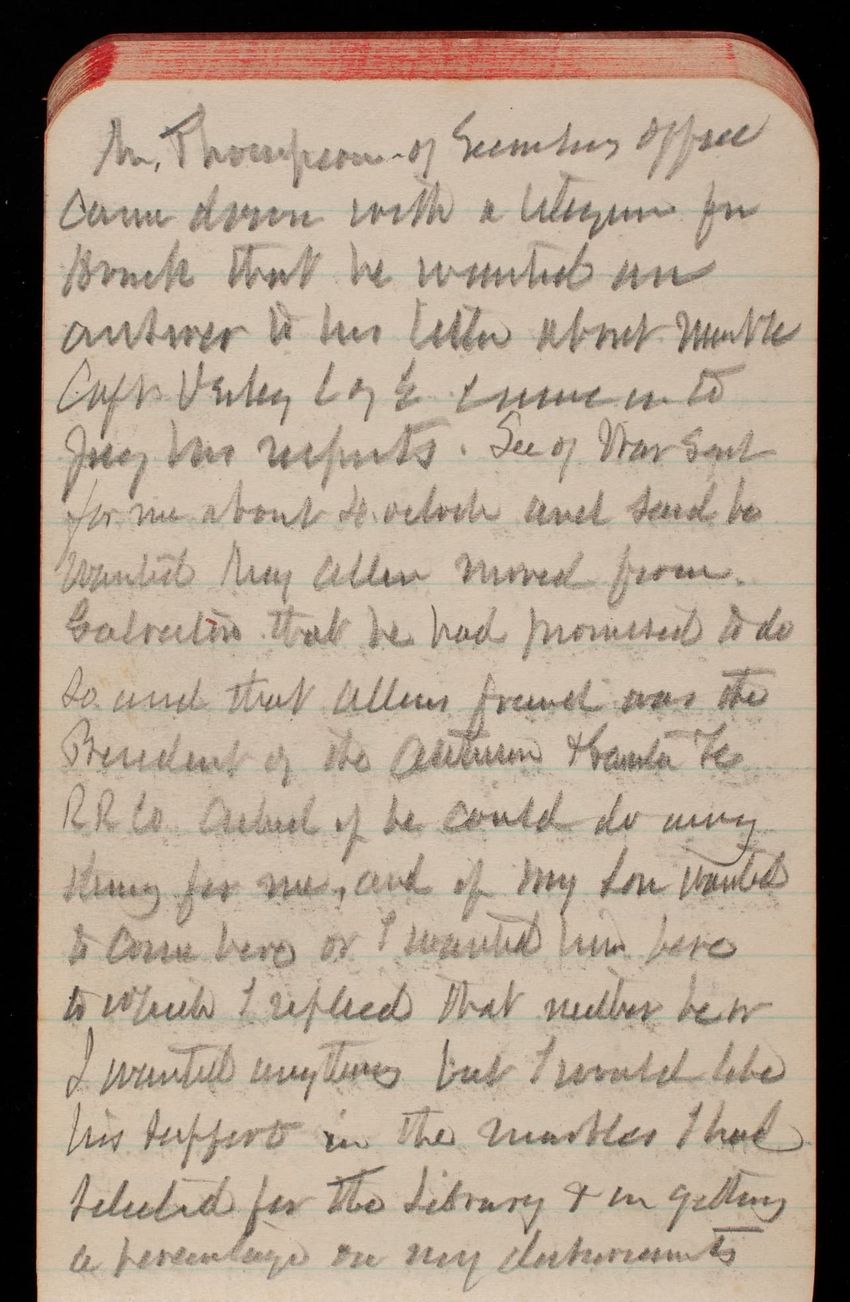 Mr. Thompson of Secretarys Office
Came down with a telegram for
that he wanted an
answer to his letter about Marble
Capt C of E came in to
his reports. Sec of War sent
for me about 2 oclock and said he
wanted Maj Allen moved from
Galveston that he had promised to do
so and that Allens friend was the
President of the Atchison & Santa Fe
RR Co Asked if he could do any
thing for me, and if my son wanted
to come here or I wanted him here
to which I replied that neither he or
I wanted anything but I would like
his support in the marbles I had
selected for the Library & in getting
a percentage on my disbursements